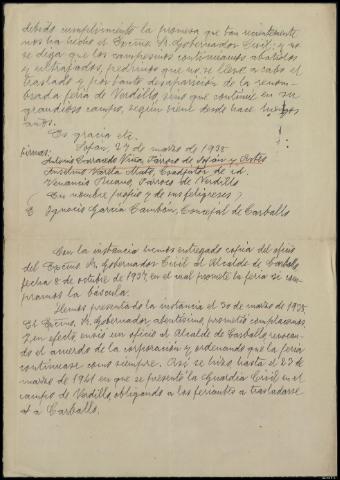 debido cumplimiento la promesa que tan recientemente
nos ha hecho el Excmo. Sr. Gobernador Civil; y no
se diga que los campesinos continuamos abatidos
y ultrajados, pedimos que no se lleve a cabo el
traslado y por tanto desaparición de la renom-
brada feria de Verdillo, sino que continúe en su
grandioso campo, según viene desde hace
años.
Es gracia etc.
Sofán, 27 de marzo de 1938
firmas: Antonio Viña, Párroco de Sofán y
Anselmo Varela Mato, Coadjutor de id.
Venancio Párroco de Verdillo
(En nombre propio y de mis feligreses)
E Ignacio García Cambón, Concejal de Carballo
Con la instancia hemos entregado copia del oficio
del Excmo. Sr. Gobernador Civil al Alcalde de Carballo
fecha 8 de octubre de 1937, en el cual promete la feria si com-
pramos la báscula.
Hemos presentado la instancia el 30 de marzo de 1938.
El Excmo. Sr. Gobernador atentísimo, prometió complacernos
y, en efecto envió un oficio al Alcalde de Carballo, revocan-
do el acuerdo de la corporación y ordenando que la feria
continuase como siempre. Así se hizo hasta el 23 de
marzo de 1941 en que se presentó la Guardia Civil en el
campo de Verdillo, obligando a los feriantes a trasladarse
a Carballo.